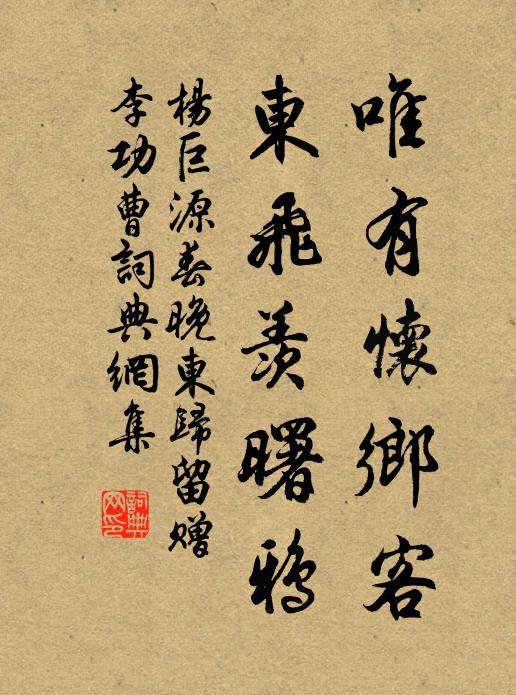 唯有懷鄉客
東飛羨曙鴉
楊巨源春晚東歸留贈
李功曹詞典網集